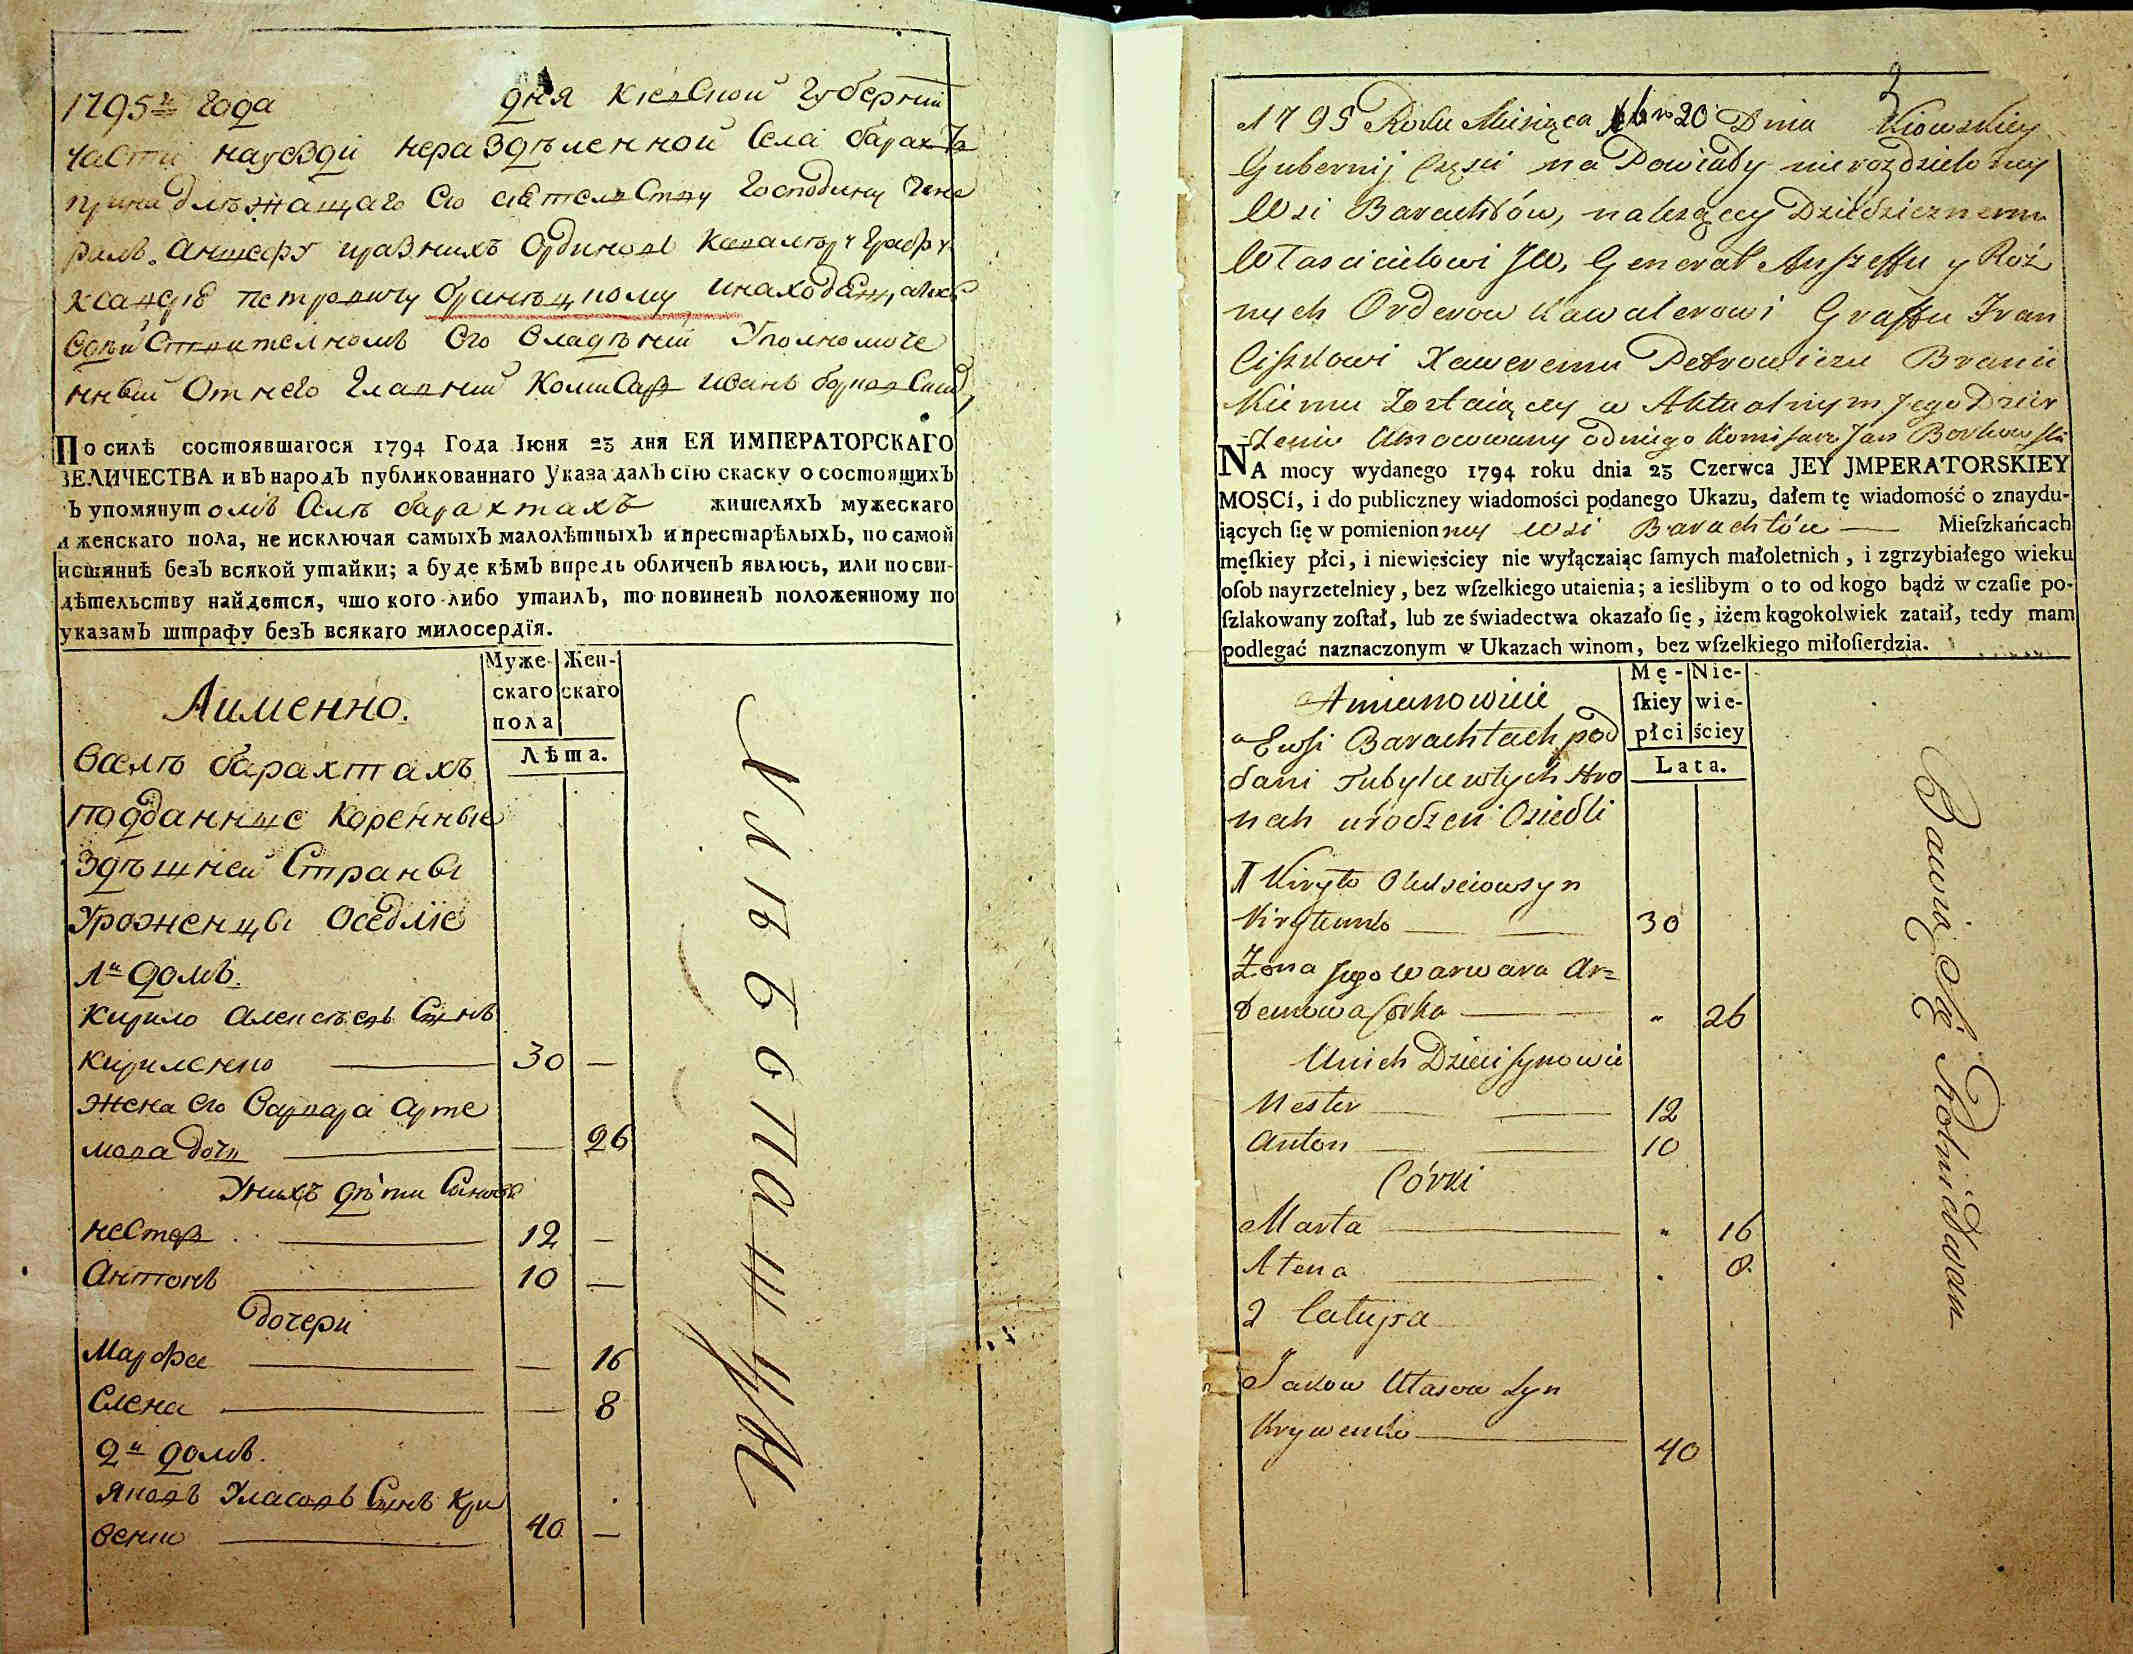 1795го года дня Киевской Губернии
части науезди неразделенной села барахтъ
принадлѣжащаго Его сиѣтелвству Господину Гене
ралъ Аншефу разнихъ Ординовъ Кавалеру Графу
Ксаверiю петровичу браницкому
Его владѣнiй Уполномоче
нный Отнего главний Комисаръ Иванъ борковский
По силѣ состоявшагося 1794 Года Iюня 23 дня ЕЯ ИМПЕРАТОРСКАГО
ВЕЛИЧЕСТВА и въ народъ публикованнаго Указа далъ сiю скаску о состоящихъ
ъ упомянутомъ Селѣ барахтахъ жителяхъ мужескаго
и женскаго пола, не исключая самыхъ малолѣтныхъ и престарѣлыхъ, по самой
истиннѣ безъ всякой утайки; а буде кѣмъ впредь обличенъ явлюсь, или по сви-
дѣтельству найдется, что кого-либо утаилъ, то повиненъ положенному по
указамъ штрафу безъ всякаго милосердiя.
Муже- Жен-
скаго скаго
пола
Лѣта.
Аименно.
Вселѣ барахтахъ
подданние коренные
здѣшней Страны
Уроженцы Оседлiе
1й домъ.
Кирило алексѣевъ Синъ
кириленко 30 —
жена его варвара арте
мова дочь — 26
Унихъ дѣти Синовя
нестор 12 —
Антонъ 10 —
дочери
Марфа — 16
Елена — 8
2й домъ.
Яковъ Уласовъ Синъ Кри
венко 40 —
Хлѣбопашцы
2
1795 Roku Miesiąca 20 Dnia Kiowskiey
Gubernij Częsci na Powiady nierozdzieloney
Wsi Barachtów, należącey Dziedzicznemu
Włascicielowi JW, Generał Anszeffu y Róż
nych Orderow Kawalerowi Graffu Fran
ciszkowi Xaweremu Petrowiczu Branic
kiemu Zostaiącey w Aktualnym Jego Dzier
żeniu Umocowany od niego Komisarz Jan Borkowski
NA mocy wydanego 1794 roku dnia 23 Czerwca JEY JMPERATORSKIEY
MOŚCI, i do publiczney wiadomości podanego Ukazu, dałem tę wiadomość o znaydu-
iących ſię w pomienionney wsi Barachtów — Mieſzkańcach
męſkiey płci, i niewieściey nie wyłączaiąc ſamych małoletnich, i zgrzybiałego wieku
oſob nayrzetelniey, bez wſzelkiego utaienia; a ieślibym o to od kogo bądź w czaſie po-
ſzlakowany zoſtał, lub ze świadectwa okazało ſię, iżem kogokolwiek zataił, tedy mam
podlegać naznaczonym w Ukazach winom, bez wſzelkiego miłoſierdzia.
Mę- Nie-
ſkiey wie-
płci ściey
Lata.
Amianowicie
Wewsi Barachtach pod
dani Tubylcewtych stro
nach urodzeni Osiedli
1 Kiryło Olexiciow syn
Kirylenko 30
Żona Jego Warwara Ar=
demowa Corka „ 26
Unich Dzieci synowie
Nester 12
Anton 10
Córki
Marta „ 16
Alena . 8.
2 Calupa
Jakow Ułasow syn
Krywenko 40
Bawią Się Rolnictwam